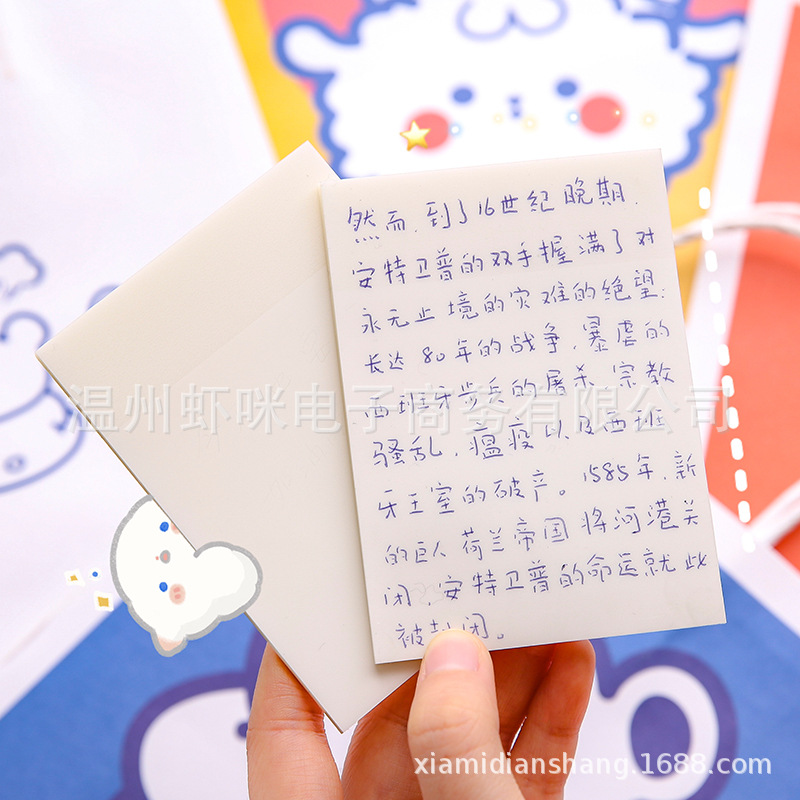 然而,到了16世纪晚期,
安特卫普的双手握满了对
永无止境的灾难的绝望:
长达80年的战争,暴虐的
西班牙步兵的屠杀,宗教
骚乱,瘟疫以及西班
牙王室的破产。1585年,新
的巨人荷兰帝国将河港关
闭,安特卫普的命运就此
被封闭。
温州虾咪电子商务有限公司
xiamidianshang.1688.com